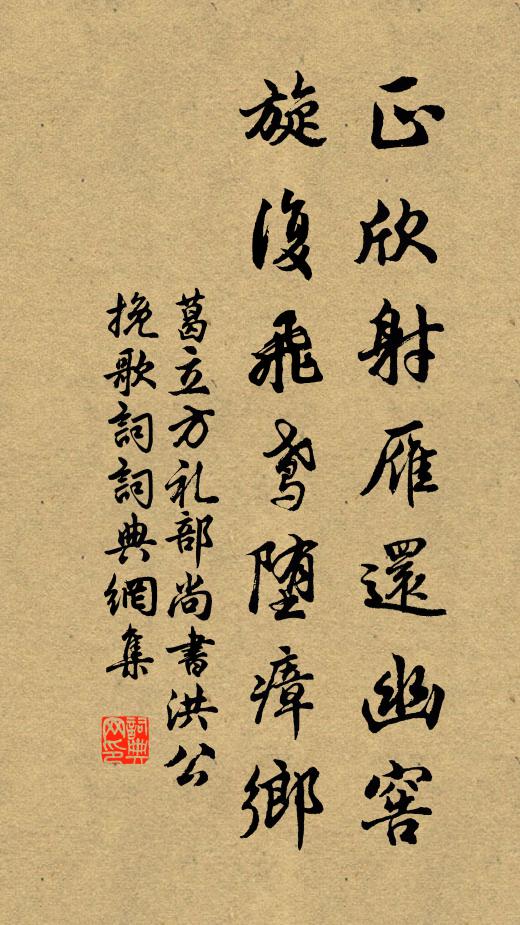 正欣射雁還幽窖
旋復飛鳶墮瘴鄉
葛立方礼部尚書洪公
挽歌詞詞典網集
詞典
网印